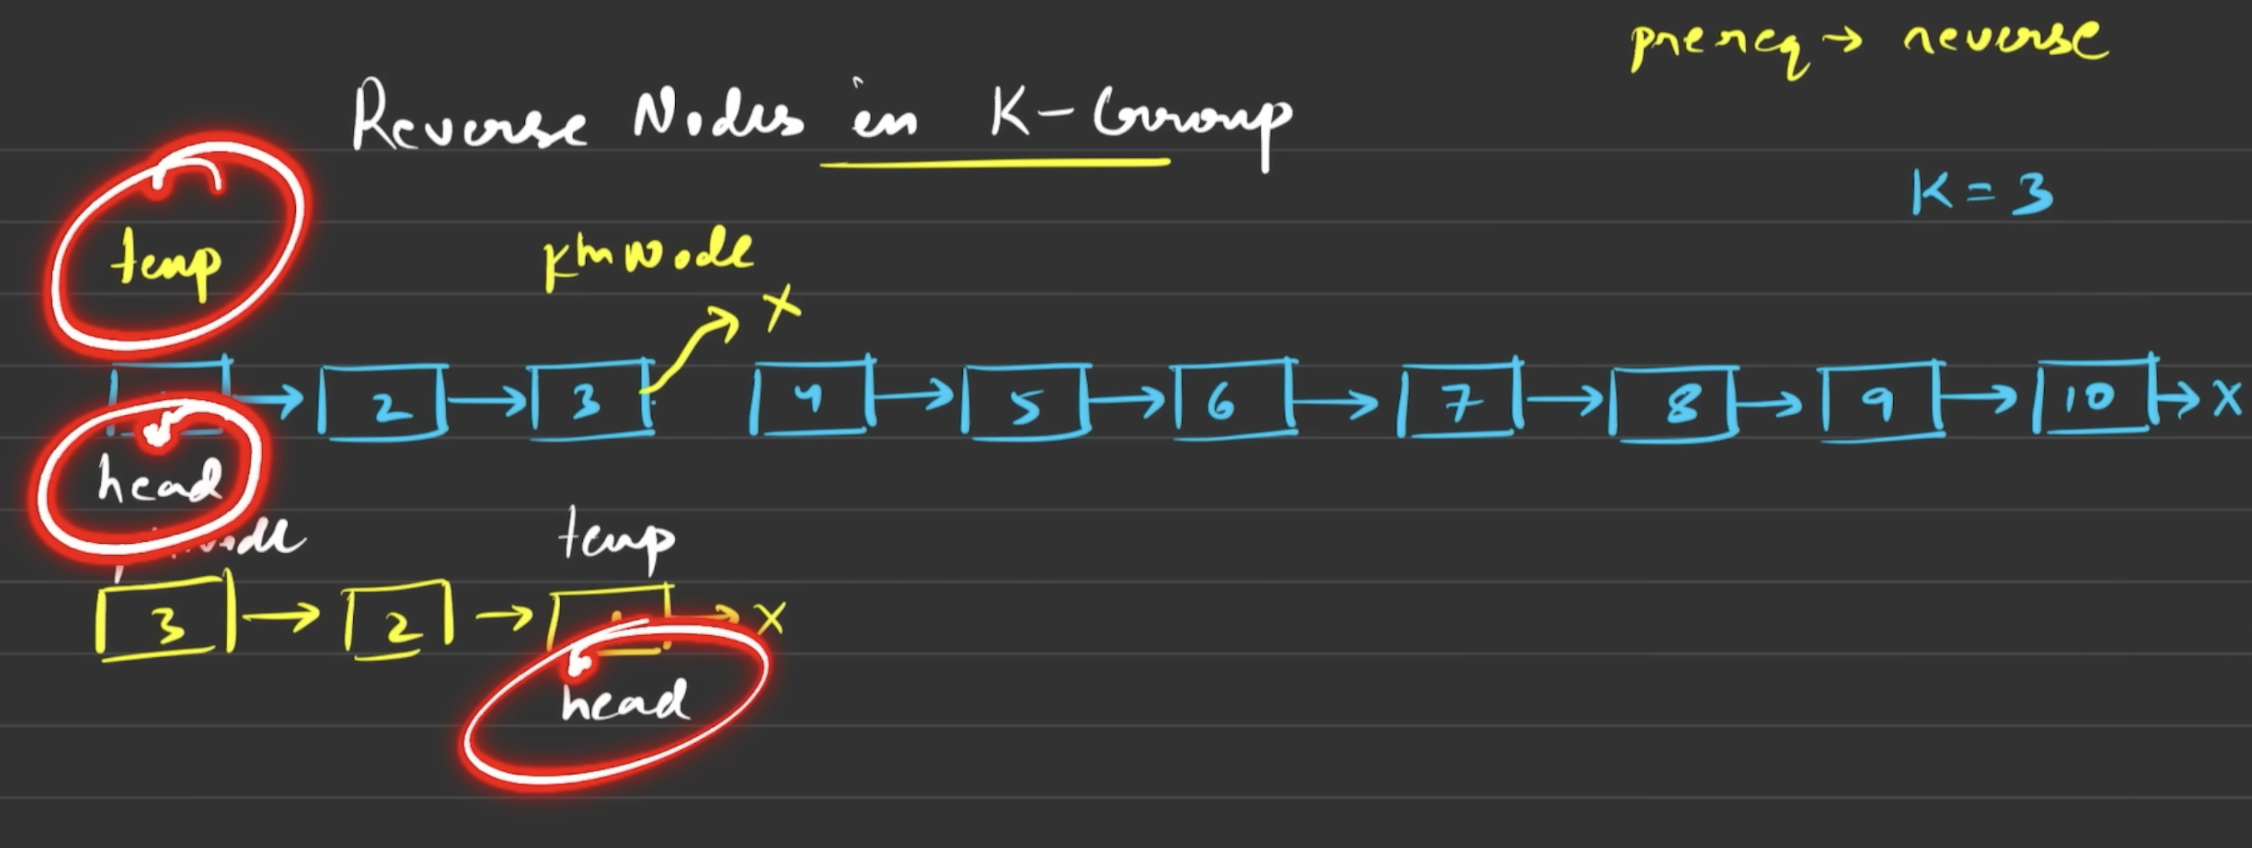 prereq → reverse
Reverse Nodes in K-Group
K = 3
temp
KthNode
X
→ 2 → 3 4 → 5 → 6 → 7 → 8 → 9 → 10 → X
head
temp
3 → 2 → → X
head